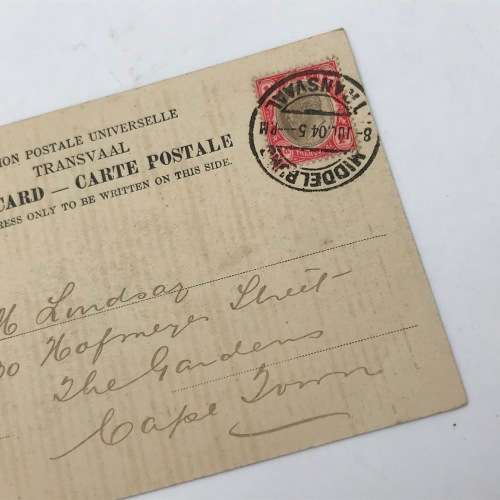 ION POSTALE UNIVERSELLE
TRANSVAAL
CARD — CARTE POSTALE
RESS ONLY TO BE WRITTEN ON THIS SIDE.
TRANSVAAL
8 JUL 04 5 — PM
MIDDELB
TRANSVAAL
Lindsay
30 Hofmeyer Street
The Gardens
Cape Town